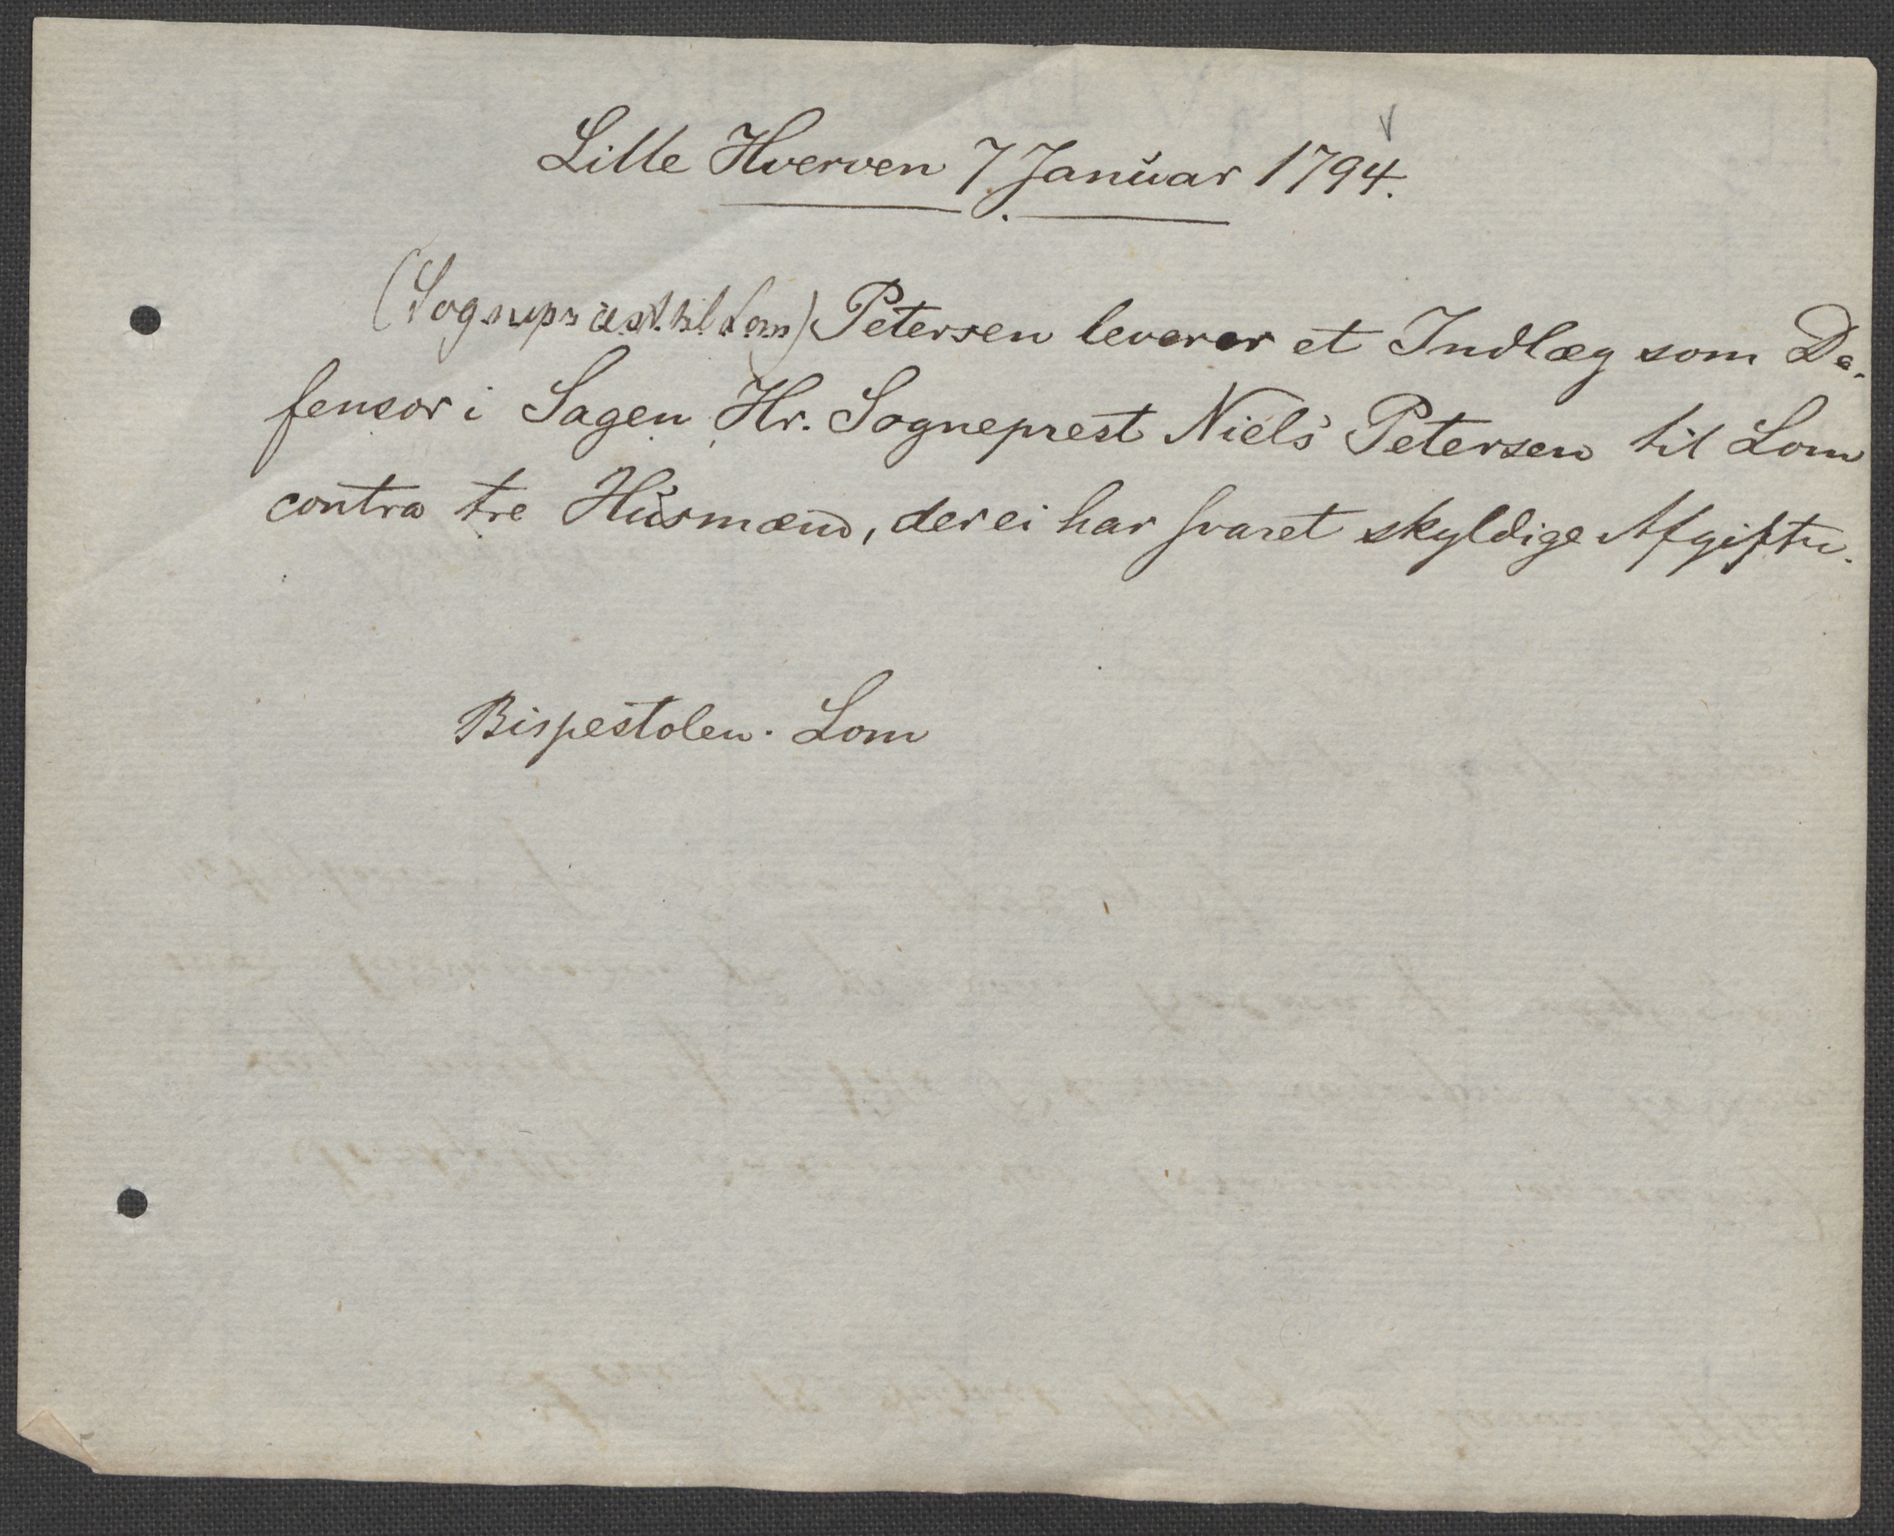 Lille Hverven 7 Januar 1794.
(Sognepræst til Lom) Petersen leverer et Indlæg som De-
fensor i Sagen Hr. Sogneprest Niels Petersen til Lom
contra tre Husmænd, der ei har svaret skyldige Afgifter.
Bispestolen. Lom